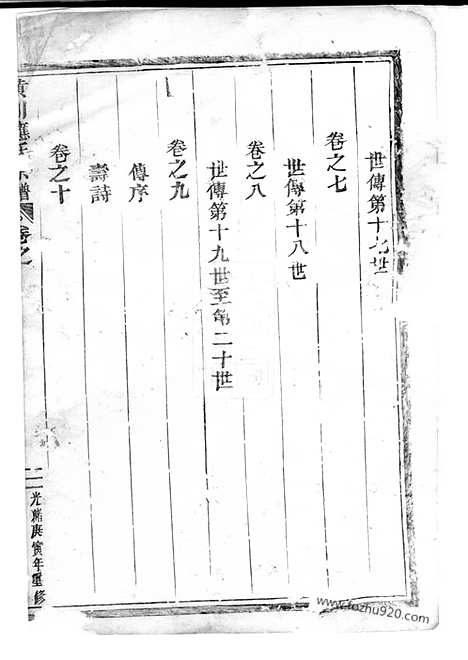 世傳第十七世
卷之七
世傳第十八世
卷之八
世傳第十九世至第二十世
卷之九
傳序
壽詩
卷之十
黃川 譜 卷之
二 光緒庚寅年重修
www.fozhu920.com